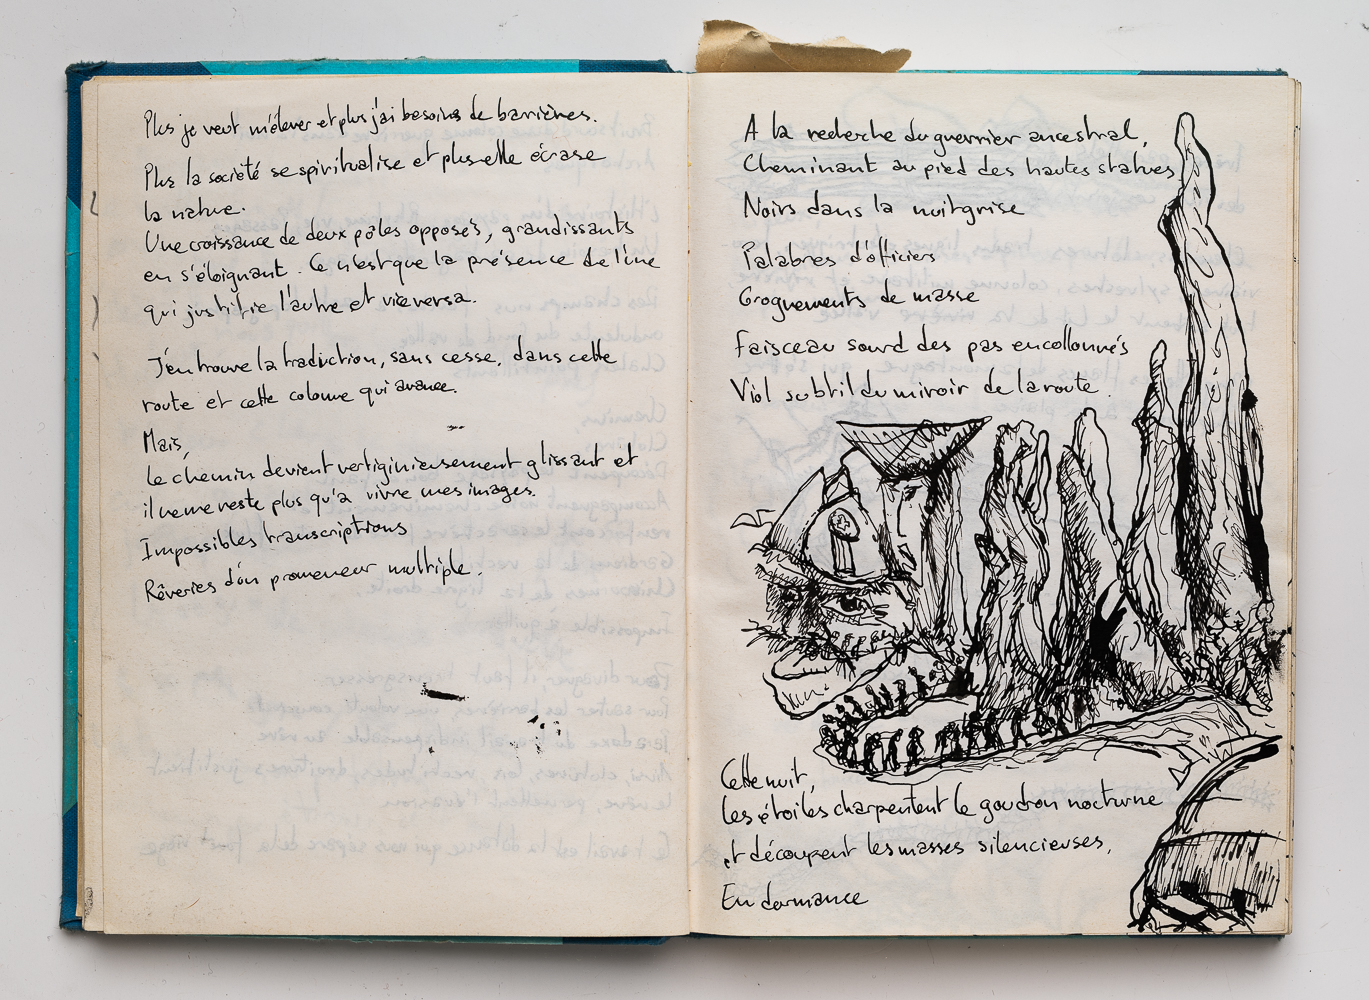 Plus je veut m'élever et plus j'ai besoins de barrières.
Plus la société se spiritualise et plus elle écrase
la nature.
Une croissance de deux pôles opposés, grandissants
en s'éloignant. Ce n'est que la présence de l'une
qui justifie l'autre et vice versa.
J'en trouve la traduction, sans cesse, dans cette
route et cette colonne qui avance.
Mais,
le chemin devient vertiginieusement glissant et
il ne me reste plus qu'à vivre mes images.
Impossibles transcriptions
Rêveries d'un promeneur multiple.
A la recherche du guerrier ancestral,
Cheminant au pied des hautes statues
Noirs dans la nuit grise
Palabres d'officiers
Grognements de masse
Faisceau sourd des pas encollonnés
Viol subtil du miroir de la route.
Cette nuit,
les étoiles charpentent le goudron nocturne
et découpent les masses silencieuses,
En dormance